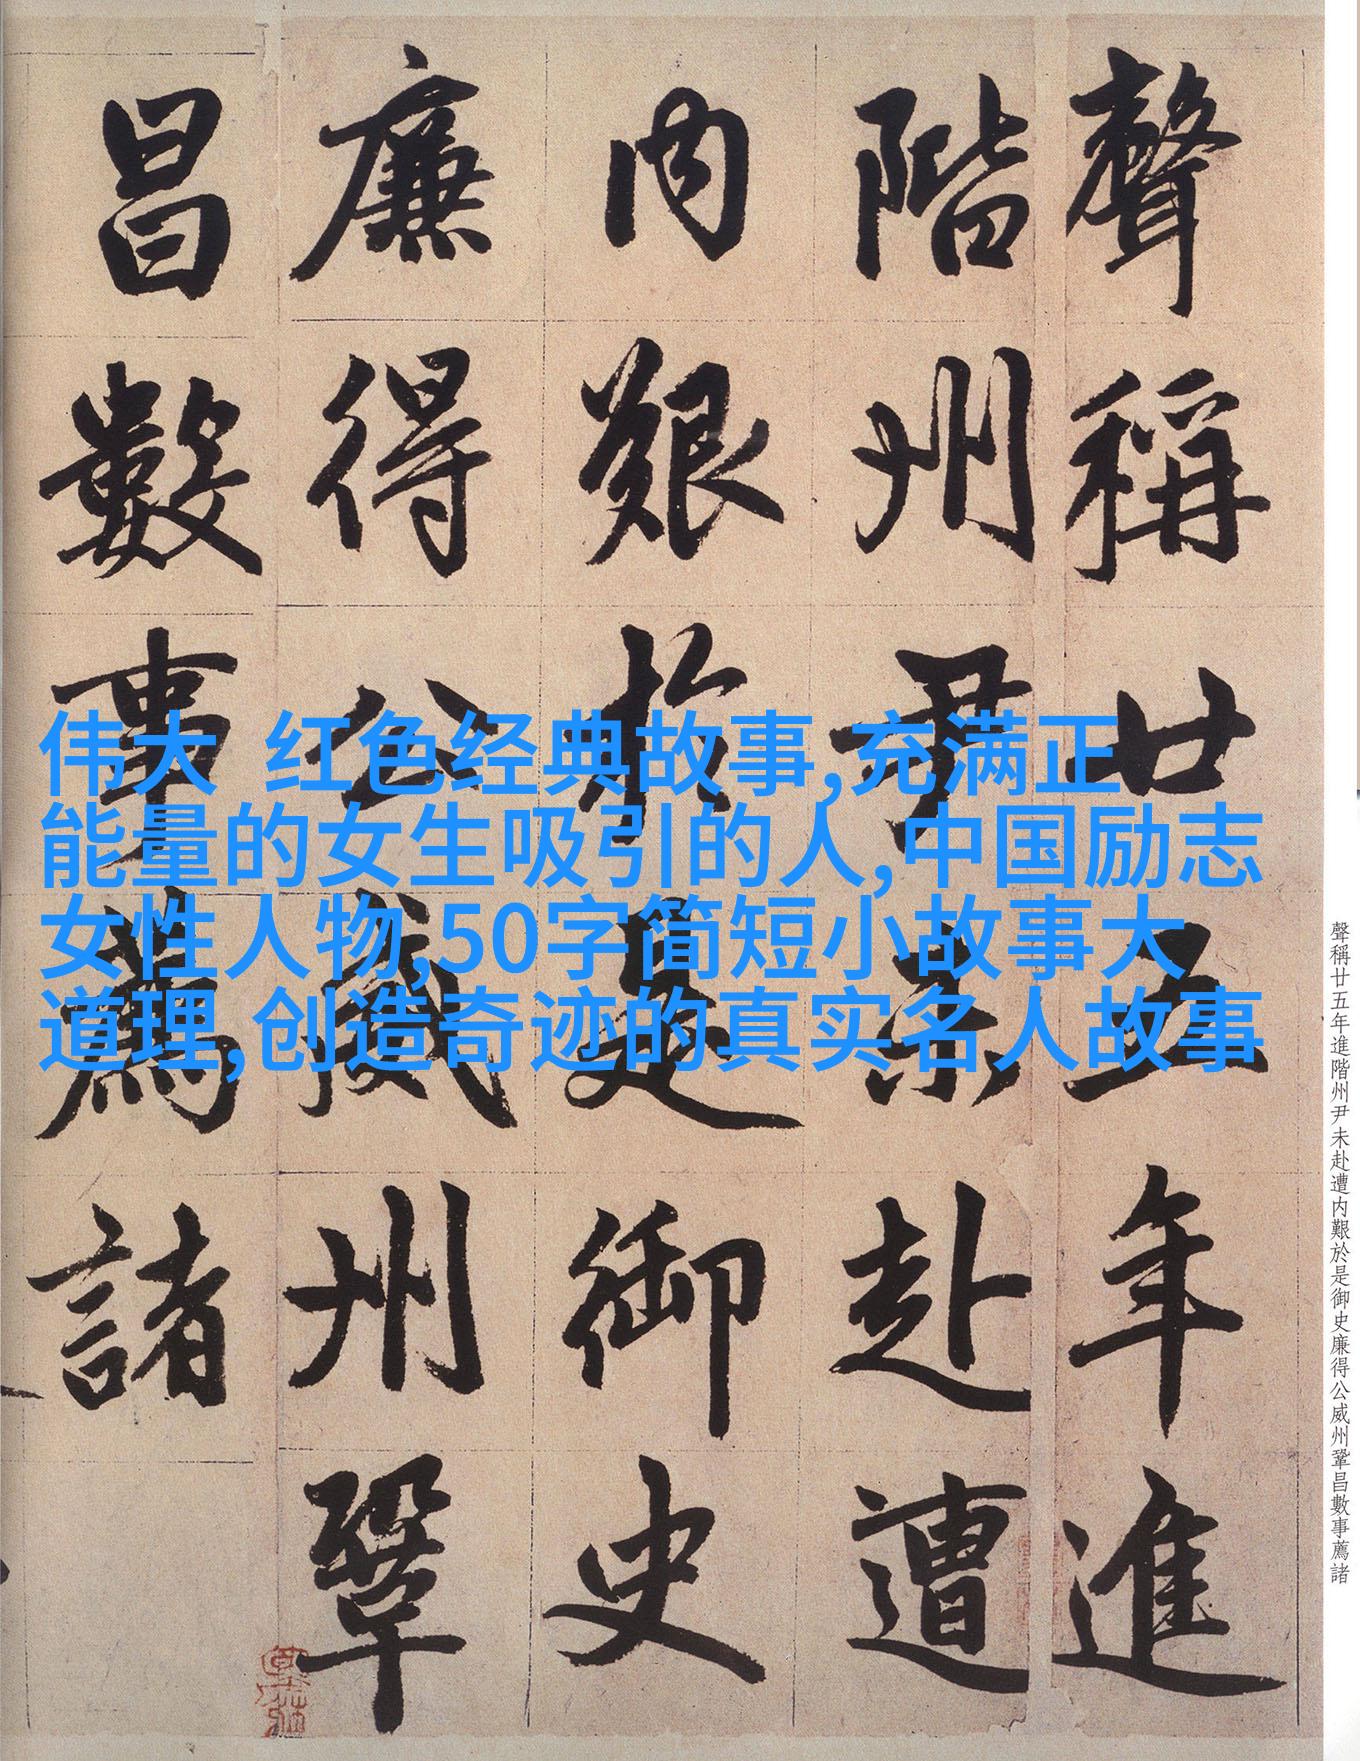 聲稱廿五年進
階州尹未赴遭
内艱於是御史
廉得公威州鞏
昌數事薦諸
伟大 红色经典故事,充满正
能量的女生吸引的人,中国励志
女性人物,50字简短小故事大
道理,创造奇迹的真实名人故事
聲稱廿五年進階州尹未赴遭内艱於是御史廉得公威州鞏昌數事薦諸